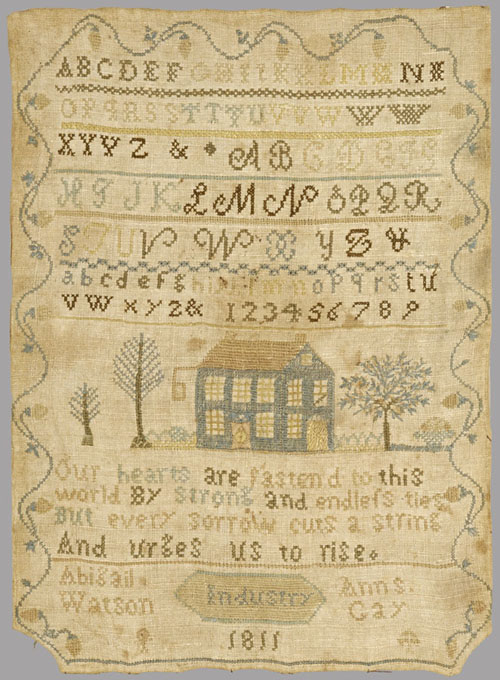 A B C D E F G H I I K K L L M M N N
O P Q R S S T T T U V V W W W
X Y Y Y Z & A B C D E F G
H I J K L M N O P Q R
S T U V W X Y Z &
a b c d e f g h i k l m n o p q r s t u
v w x y z & 1 2 3 4 5 6 7 8 9
Our hearts are fastend to this
world By strong and endleſs ties
But every sorrow cuts a string
And urges us to rise.
Abigail
Watson
Industry
Ann S.
Gay
1811